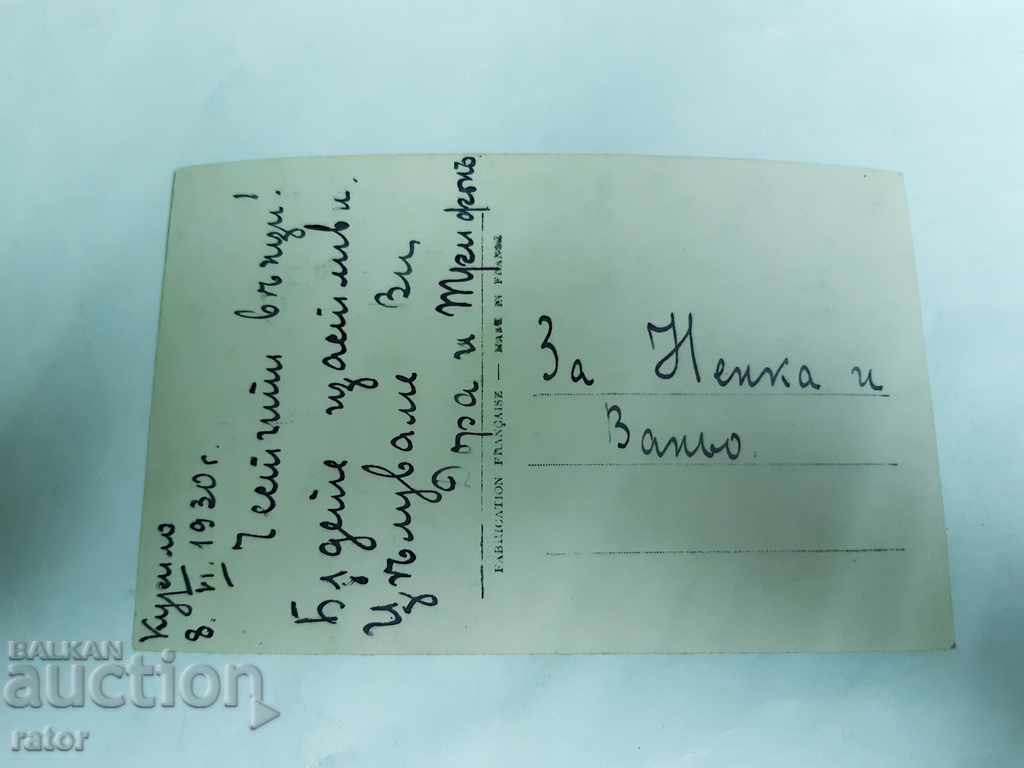 Курило
8.VI.1930 г.
Честити вѣнци!
Бѫдете щастливи.
Цѣлуваме Ви
Дора и Трифонъ
FABRICATION FRANÇAISE — MADE IN FRANCE
За Ненка и
Ваньо.
BALKAN
auction
rator